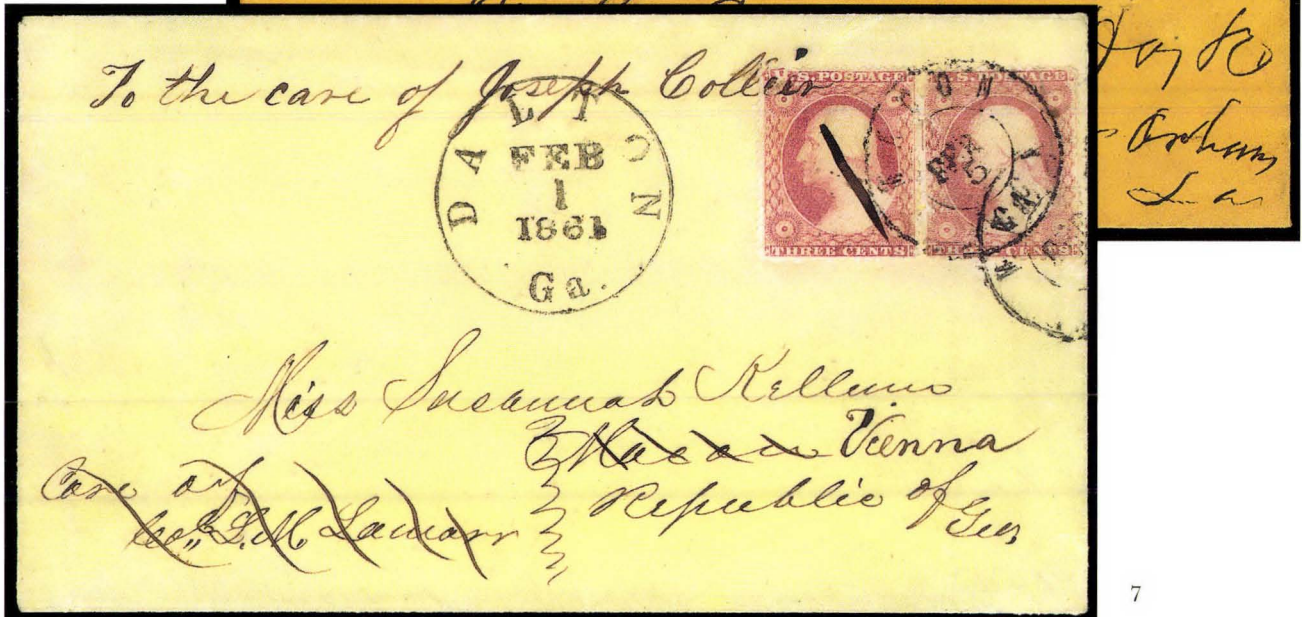 To the care of Joseph Collier
DALTON
FEB
1
1861
Ga.
U.S. POSTAGE
THREE CENTS
U.S. POSTAGE
THREE CENTS
Miss Susannah Kellum
Macon Vienna
Republic of Geo
Care of
Col. L. M. Lamarr
La
7